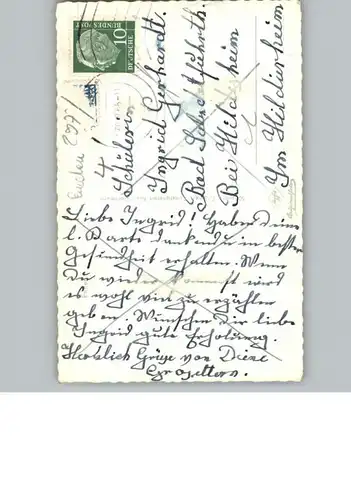 10
DEUTSCHE
BUNDESPOST
Schülerin
Ingrid Gerhardt.
Bad Salzdetfurth.
Bei Hildesheim
Im Hildesheim
Liebe Ingrid! Haben deine
l. Karte dankend u in bester
Gesundheit erhalten. Wenn
du wieder kommst wird
es wohl viel zu erzählen
geben. Wünschen Dir liebe
Ingrid gute Erholung.
Herzlich Grüße von Deine
Grosseltern.